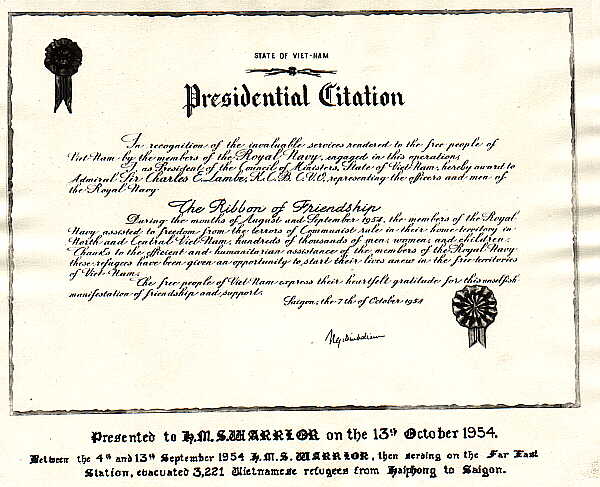 STATE OF VIET-NAM
Presidential Citation
In recognition of the invaluable services rendered to the free people of
Viet-Nam by the members of the Royal Navy, engaged in this operation,
I, as President of the Council of Ministers, State of Viet-Nam, hereby award to
Admiral Sir Charles C. Lambe, K.C.B. C.V.O., representing the officers and men of
the Royal Navy
The Ribbon of Friendship
During the months of August and September 1954, the members of the Royal
Navy assisted to freedom from the terrors of Communist rule in their home territory in
North and Central Viet-Nam, hundreds of thousands of men, women, and children.
Thanks to the efficient and humanitarian assistance of the members of the Royal Navy
these refugees have been given an opportunity to start their lives anew in the free territories
of Viet-Nam.
The free people of Viet-Nam express their heartfelt gratitude for this unselfish
manifestation of friendship and support.
Saigon, the 7th of October 1954
Presented to H.M.S. WARRIOR on the 13th October 1954.
Between the 4th and 13th September 1954 H.M.S. WARRIOR, then serving on the Far East
Station, evacuated 3,221 Vietnamese refugees from Haiphong to Saigon.